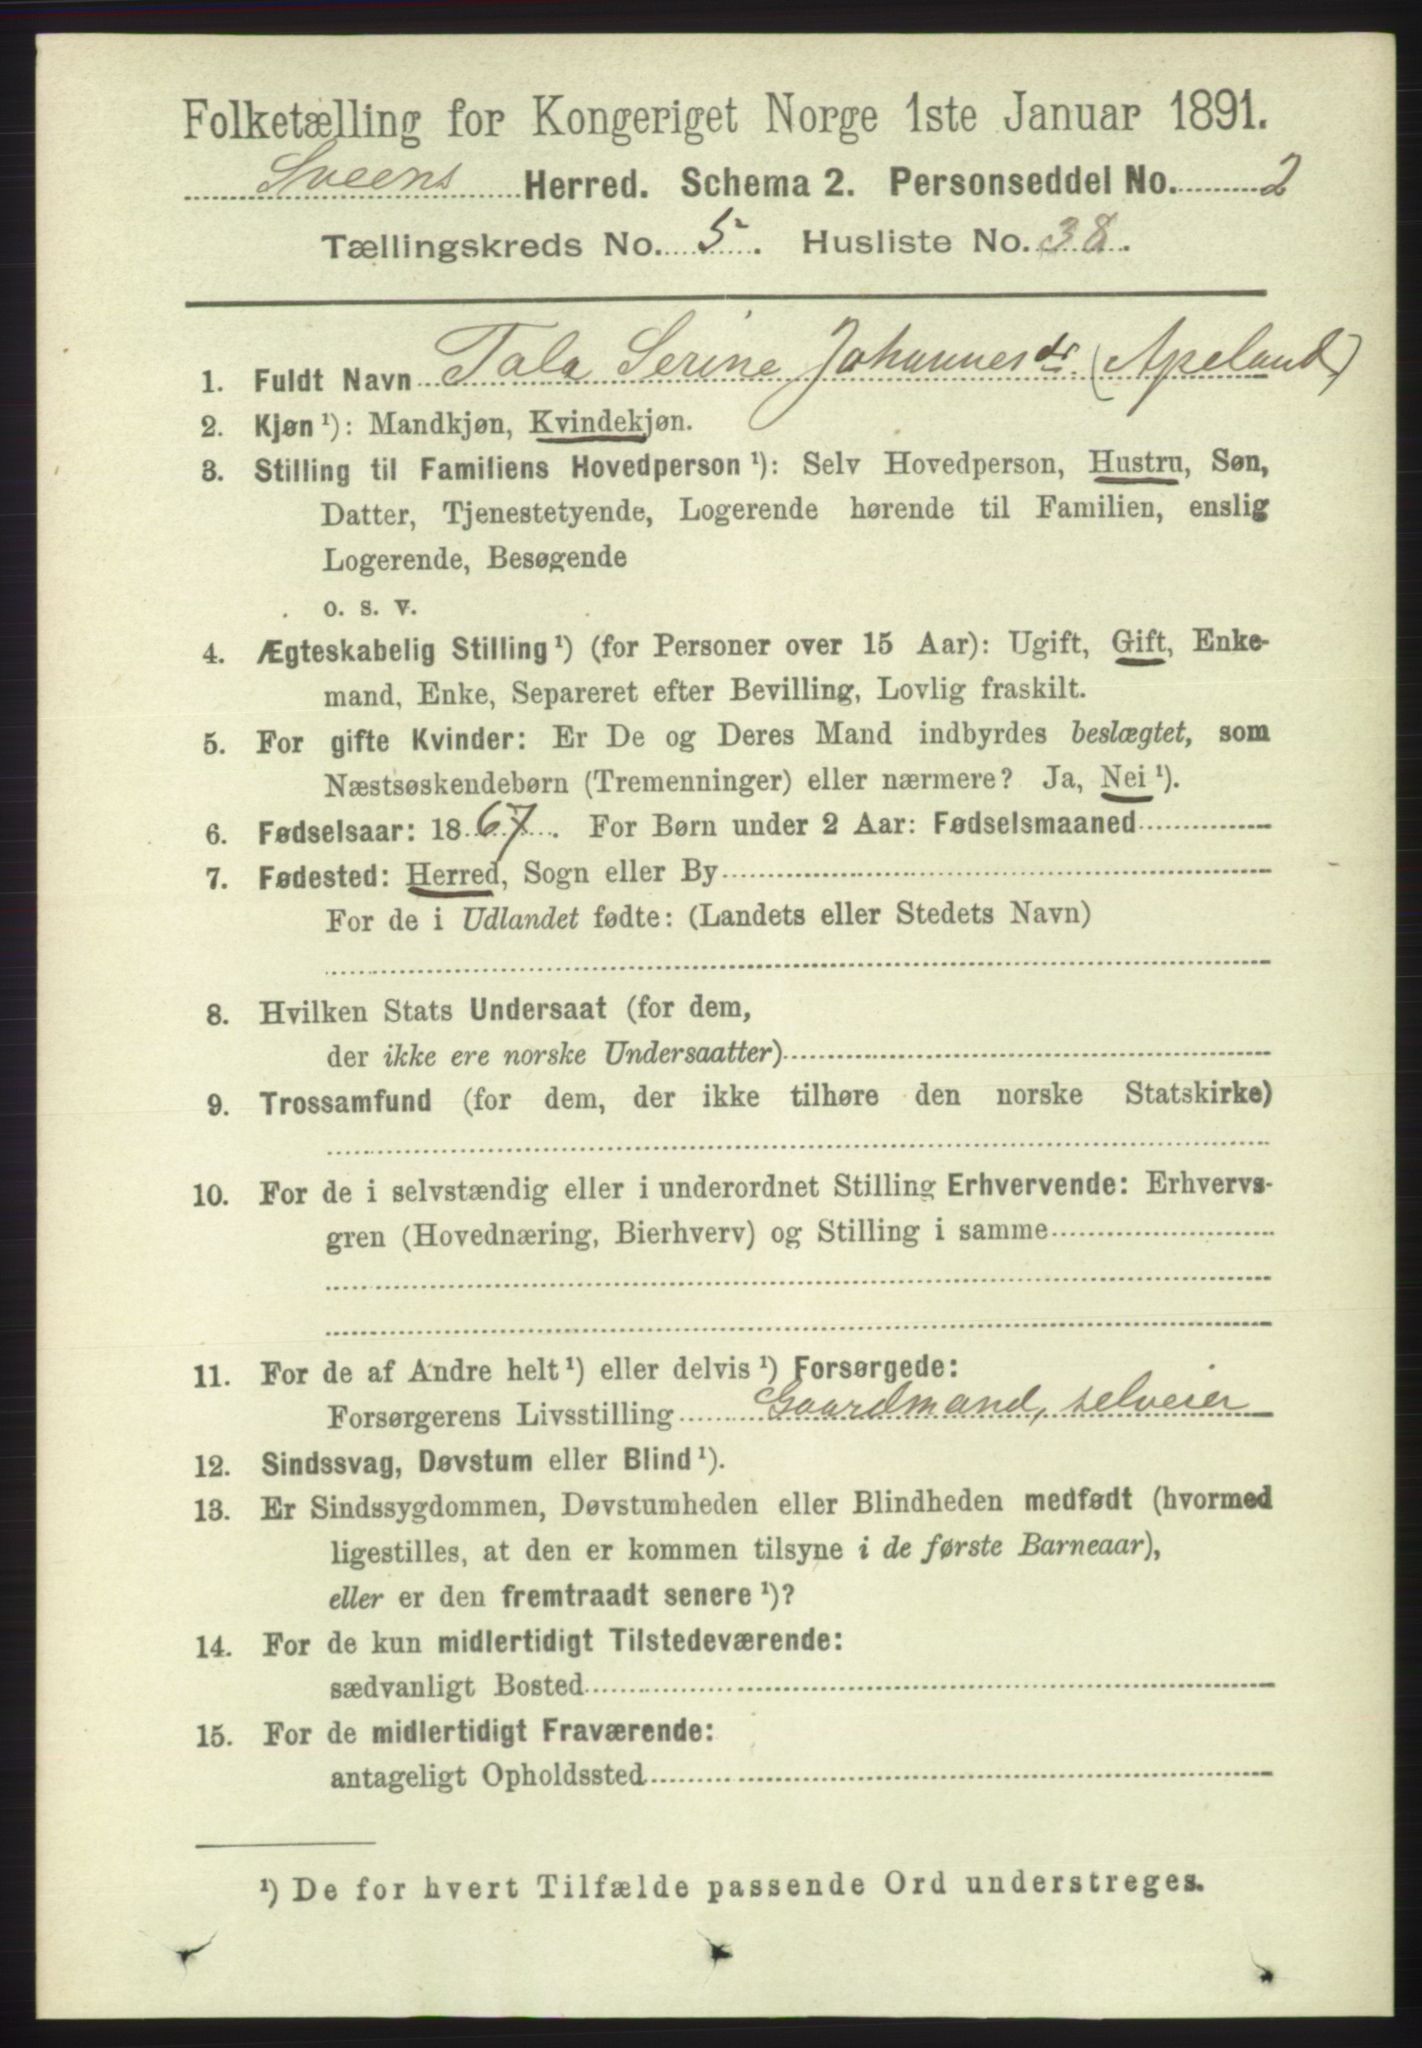 Folketælling for Kongeriget Norge 1ste Januar 1891.
Sveens Herred. Schema 2. Personseddel No. 2
Tællingskreds No. 5. Husliste No. 38.
1. Fuldt Navn Tala Serine Johannesdr. (Apeland)
2. Kjøn ¹): Mandkjøn, Kvindekjøn.
3. Stilling til Familiens Hovedperson ¹): Selv Hovedperson, Hustru, Søn,
Datter, Tjenestetyende, Logerende hørende til Familien, enslig
Logerende, Besøgende
o. s. v.
4. Ægteskabelig Stilling ¹) (for Personer over 15 Aar): Ugift, Gift, Enke-
mand, Enke, Separeret efter Bevilling, Lovlig fraskilt.
5. For gifte Kvinder: Er De og Deres Mand indbyrdes beslægtet, som
Næstsøskendebørn (Tremenninger) eller nærmere? Ja, Nei ¹).
6. Fødselsaar: 1867. For Børn under 2 Aar: Fødselsmaaned
7. Fødested: Herred, Sogn eller By
For de i Udlandet fødte: (Landets eller Stedets Navn)
8. Hvilken Stats Undersaat (for dem,
der ikke ere norske Undersaatter)
9. Trossamfund (for dem, der ikke tilhøre den norske Statskirke)
10. For de i selvstændig eller i underordnet Stilling Erhvervende: Erhvervs-
gren (Hovednæring, Bierhverv) og Stilling i samme
11. For de af Andre helt ¹) eller delvis ¹) Forsørgede:
Forsørgerens Livsstilling Gaardmand, selveier
12. Sindssvag, Døvstum eller Blind ¹).
13. Er Sindssygdommen, Døvstumheden eller Blindheden medfødt (hvormed
ligestilles, at den er kommen tilsyne i de første Barneaar),
eller er den fremtraadt senere ¹)?
14. For de kun midlertidigt Tilstedeværende:
sædvanligt Bosted
15. For de midlertidigt Fraværende:
antageligt Opholdssted
¹) De for hvert Tilfælde passende Ord understreges.